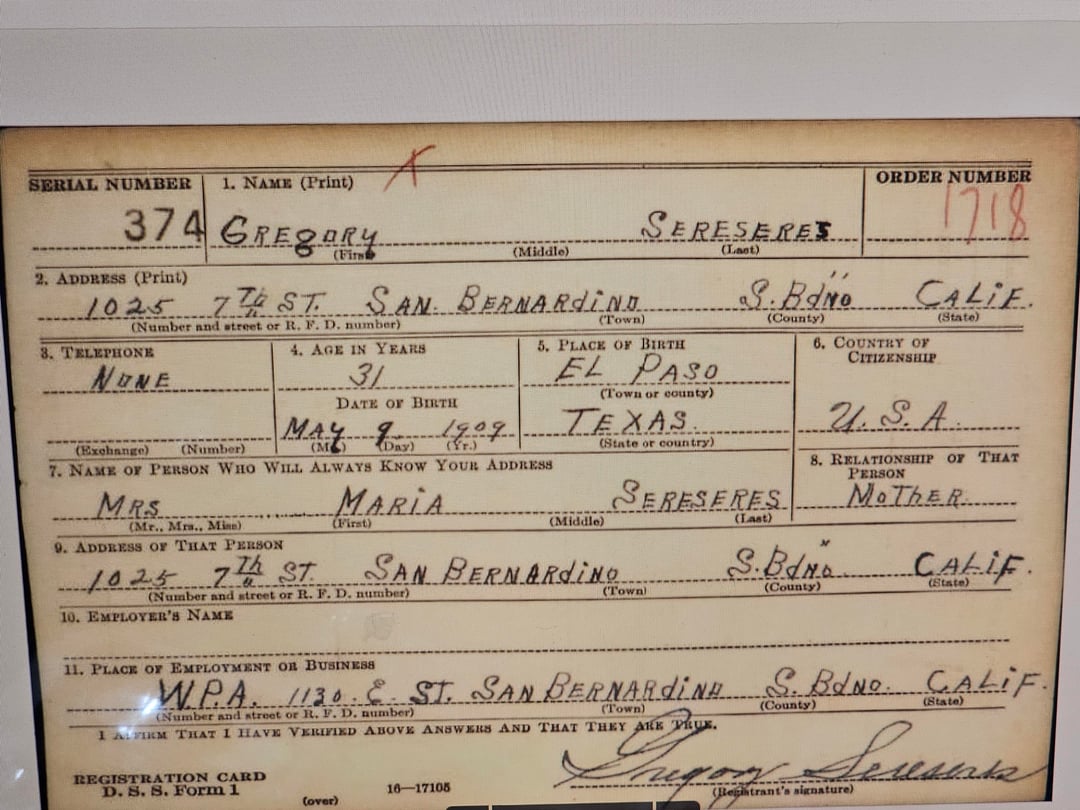 SERIAL NUMBER 1. NAME (Print) X ORDER NUMBER
374 GREGORY SERESERES 1718
(First) (Middle) (Last)
2. ADDRESS (Print)
1025 7Th ST. SAN BERNARDINO S. BdNO CALIF.
(Number and street or R. F. D. number) (Town) (County) (State)
3. TELEPHONE 4. AGE IN YEARS 5. PLACE OF BIRTH 6. COUNTRY OF CITIZENSHIP
NONE 31 EL PASO
(Town or county)
DATE OF BIRTH
MAY 9 1909 TEXAS U.S.A.
(Exchange) (Number) (Mo.) (Day) (Yr.) (State or country)
7. NAME OF PERSON WHO WILL ALWAYS KNOW YOUR ADDRESS 8. RELATIONSHIP OF THAT PERSON
MRS MARIA SERESERES MOTHER
(Mr., Mrs., Miss) (First) (Middle) (Last)
9. ADDRESS OF THAT PERSON
1025 7Th ST. SAN BERNARDINO S. BdNO. CALIF.
(Number and street or R. F. D. number) (Town) (County) (State)
10. EMPLOYER'S NAME
11. PLACE OF EMPLOYMENT OR BUSINESS
W.P.A. 1130 E ST. SAN BERNARDINO S. BdNO. CALIF.
(Number and street or R. F. D. number) (Town) (County) (State)
I AFFIRM THAT I HAVE VERIFIED ABOVE ANSWERS AND THAT THEY ARE TRUE.
Gregory Sereseres
REGISTRATION CARD
D. S. S. Form 1 (over) 16—17105 (Registrant's signature)